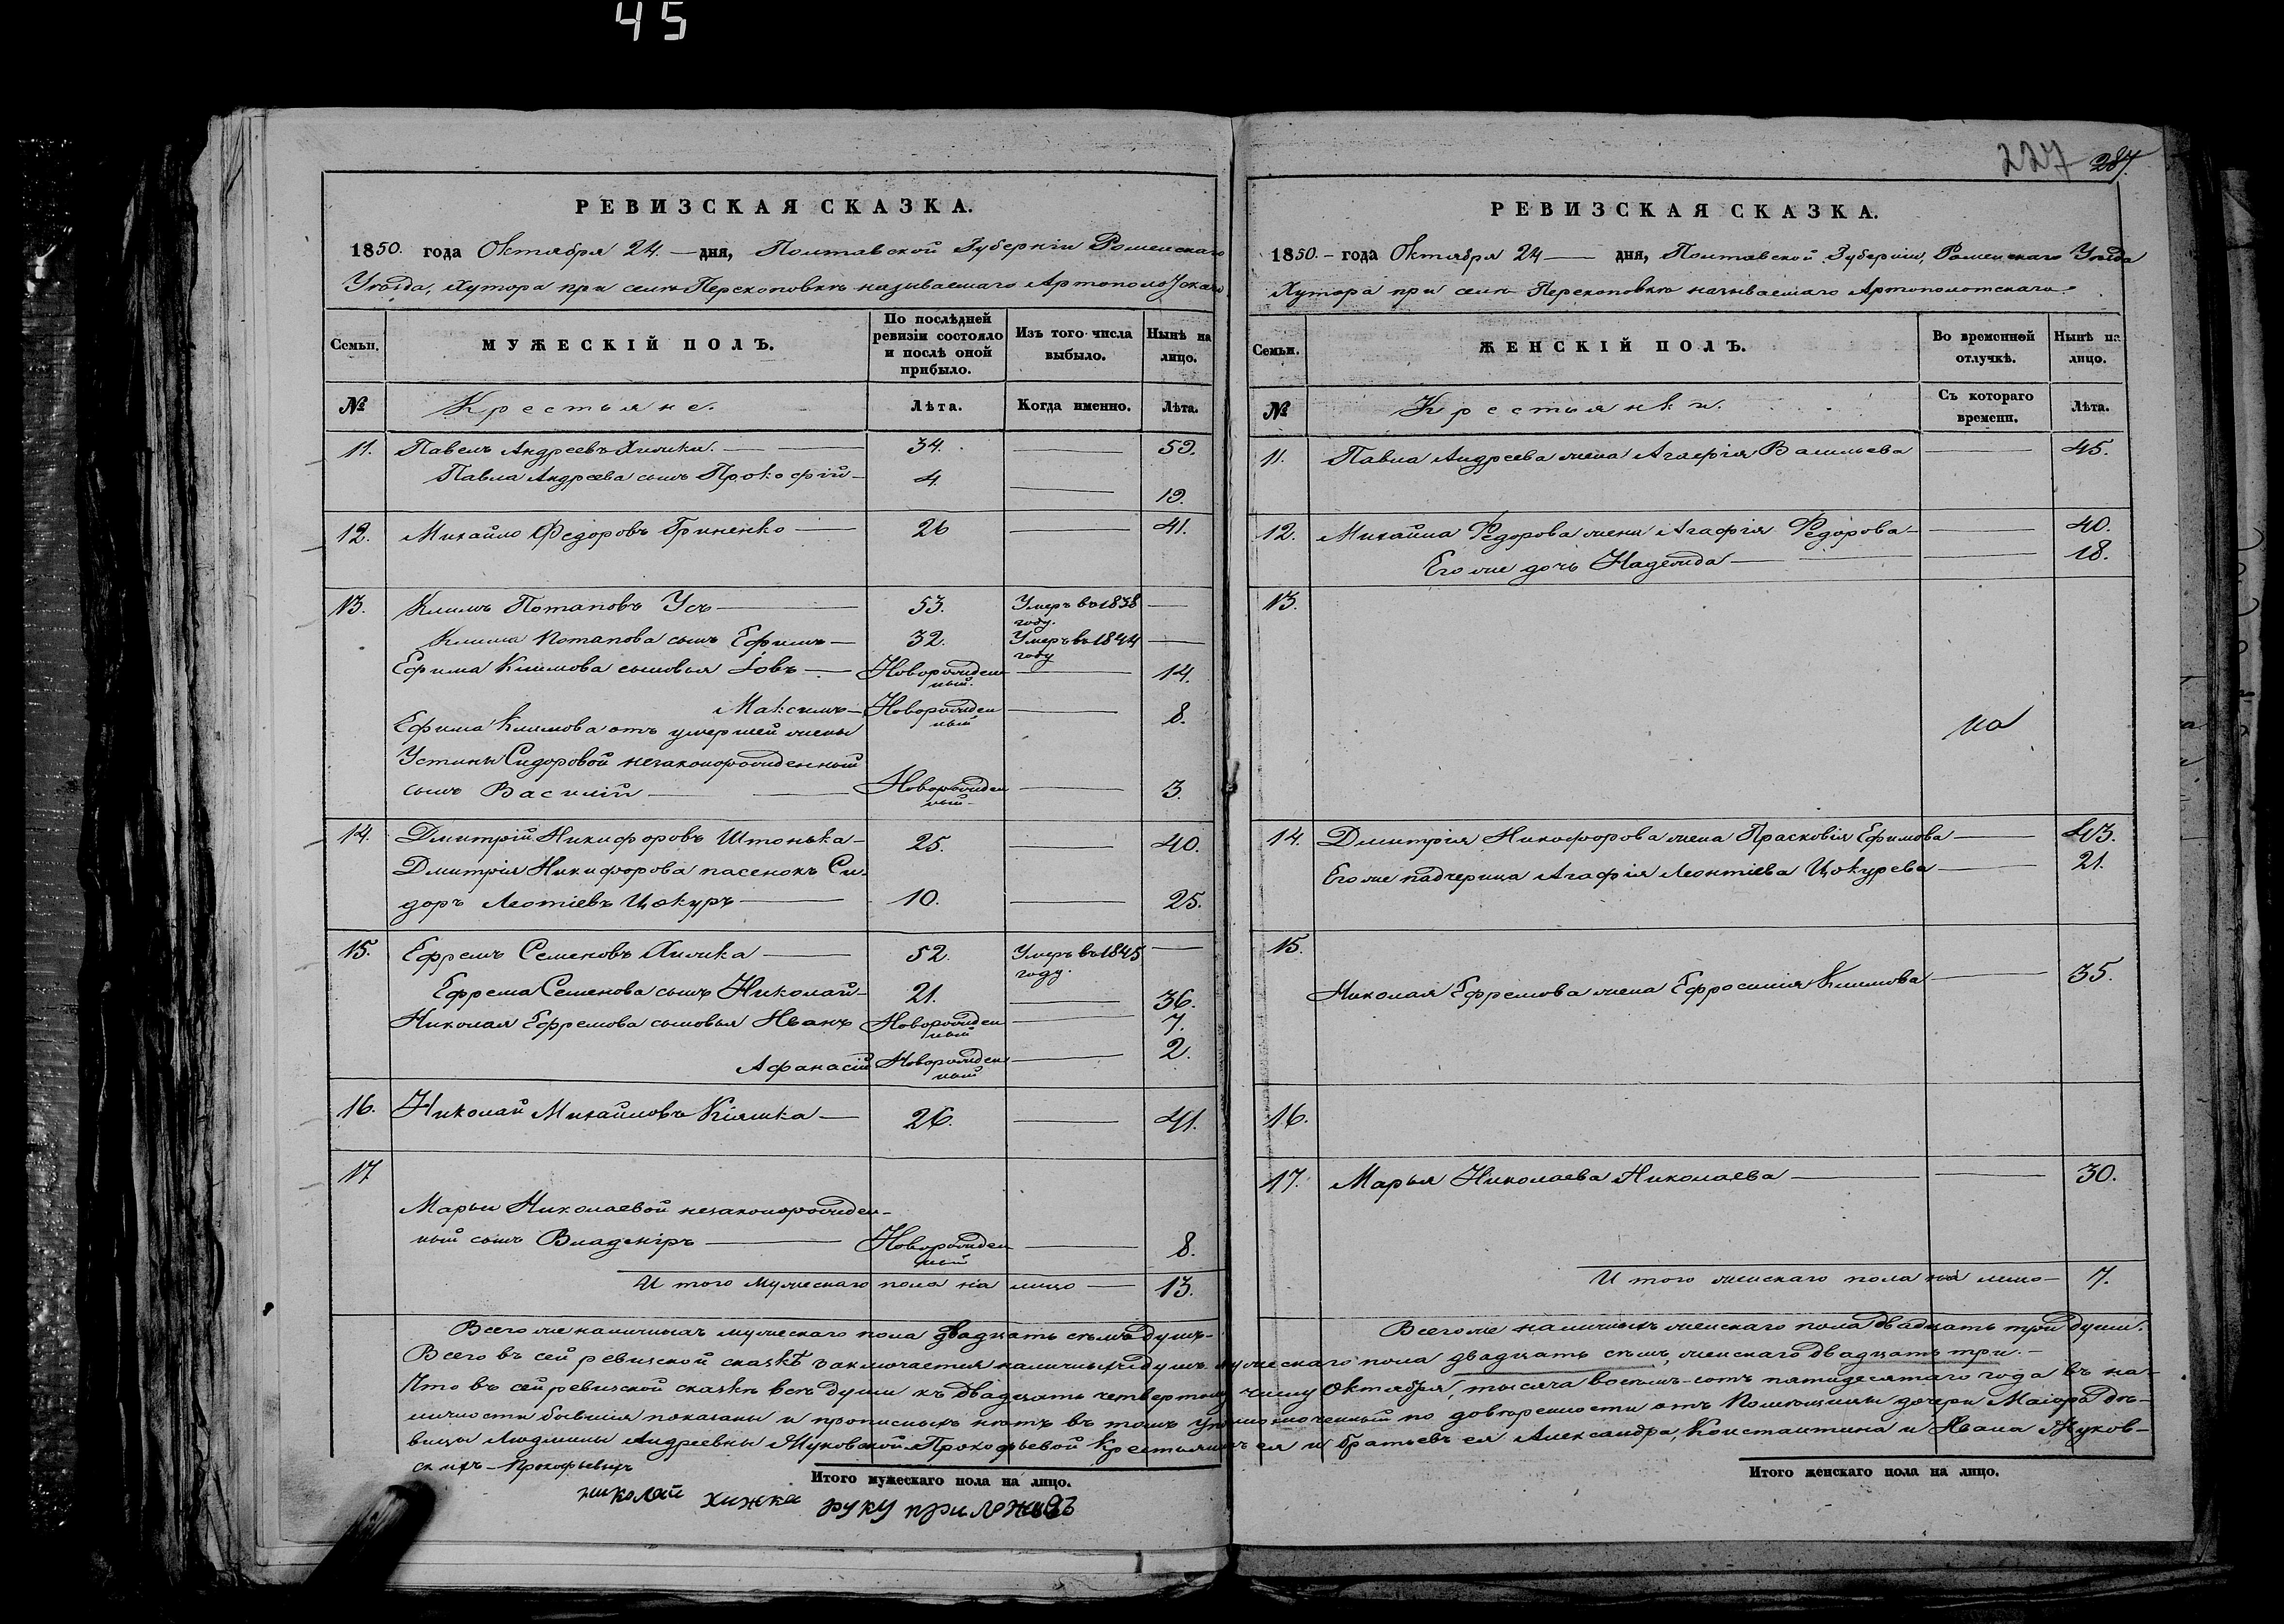 45
227 287.
РЕВИЗСКАЯ СКАЗКА.
1850. года Октября 24. — дня, Полтавской Губернии Роменскаго
Уѣзда, Хутора при селѣ Перекоповкѣ называемаго Артополотскаго
Семьи. МУЖЕСКІЙ ПОЛЪ. По послѣдней ревизіи состояло и послѣ оной прибыло. Изъ того числа выбыло. Нынѣ на лицо.
№ Крестьяне. Лѣта. Когда именно. Лѣта.
11. Павелъ Андреевъ Хижка. — 34. — 59.
Павла Андреева сынъ Прокофій — 4. — 19.
12. Михайло Федоровъ Гриненко — 26 — 41.
13. Климъ Потаповъ Усъ — 53. Умеръ въ 1838 году. —
Клима Потапова сынъ Ефимъ — 32. Умеръ въ 1844 году —
Ефима Климова сыновья Іовъ — Новорожденный. — 14.
Максимъ — Новорожденный — 8.
Ефима Климова отъ умершей жены
Устиньи Сидоровой незаконорожденный
сынъ Василій — Новорожденный — 3.
14. Дмитрій Никифоровъ Штонька — 25. — 40.
Дмитрія Никифорова пасенокъ Си-
доръ Леотіевъ Цокуръ — 10. — 25.
15. Ефремъ Семеновъ Хижка — 52. Умеръ въ 1845 году. —
Ефрема Семенова сынъ Николай — 21. — 36.
Николая Ефремова сыновья Иванъ Новорожденный — 7.
Афанасій Новорожденный — 2.
16. Николай Михайловъ Кіяшка — 26. — 41.
17
Марьи Николаевой незаконорожден-
ный сынъ Владиміръ — Новорожденный — 8.
И того мужескаго пола на лицо — 13.
РЕВИЗСКАЯ СКАЗКА.
1850. — года Октября 24 — дня, Полтавской Губерніи, Роменскаго Уѣзда
Хутора при селѣ Перекоповкѣ называемаго Артополотскаго.
Семьи. ЖЕНСКІЙ ПОЛЪ. Во временной отлучкѣ. Нынѣ на лицо.
№ Крестьянки. Съ котораго времени. Лѣта.
11. Павла Андреева жена Агафія Васильева — 45.
12. Михайла Федорова жена Агафія Федорова — 40.
Его же дочь Надежда — 18.
13.
14. Дмитрія Никифорова жена Прасковія Ефимова — 43.
Его же падчерица Агафія Леонтіева Цокурева — 21.
15.
Николая Ефремова жена Ефросинія Климова — 35.
16.
17. Марья Николаева Николаева — 30.
И того женскаго пола на лицо — 7.
Всего же наличныхъ мужескаго пола двадцать семь душъ. —
Всего же наличныхъ женскаго пола двадцать три души.
Всего въ сей ревизской сказкѣ заключается наличныхъ душъ мужескаго пола двадцать семь, женскаго двадцать три. —
Что въ сей ревизской сказкѣ всѣ души къ двадцать четвертому числу Октября, тысяча восемь-сотъ пятидесятаго года въ на-
личности бывшія показаны и прописныхъ нѣтъ въ томъ уполномоченный по довѣренности отъ Помѣщицы дочери Маіора дѣ-
вицы Людмилы Андреевны Жуковской-Прокофьевой крестьянинъ ея и братьевъ ея Александра, Константина и Ивана Жуков-
скихъ-Прокофьевыхъ
Итого мужескаго пола на лицо.
Итого женскаго пола на лицо.
николай хижка руку приложивъ